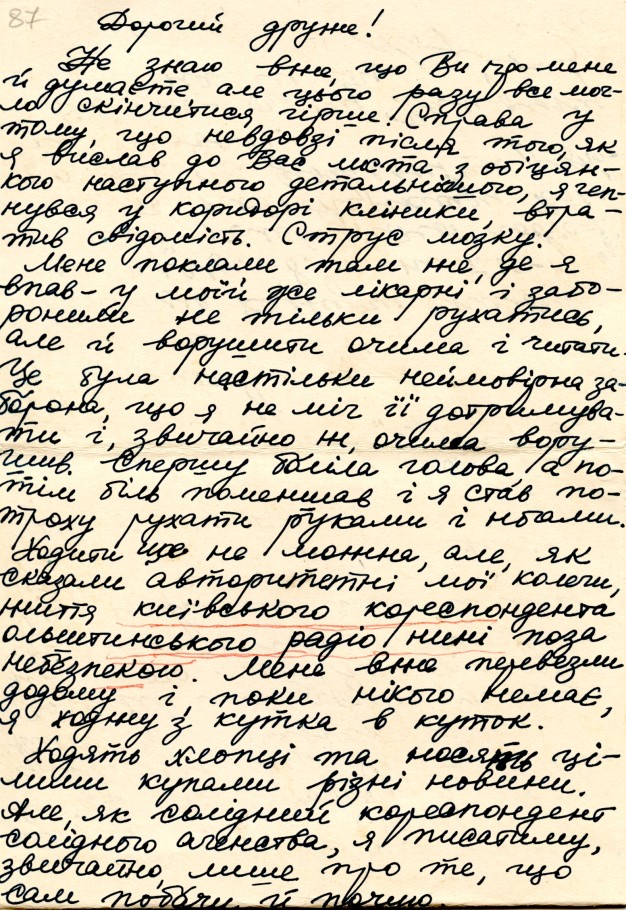 87
Дорогий друже!
Не знаю вже, що Ви про мене
й думаєте, але цього разу все мог-
ло скінчитися гірше. Справа у
тому, що невдовзі після того, як
я вислав до Вас листа з обіцян-
кою наступного детальнішого, я геп-
нувся у коридорі клініки, втра-
тив свідомість. Струс мозку.
Мене поклали там же, де я
впав – у моїй же лікарні, і забо-
ронили не тільки рухатись,
але й ворушити очима і читати.
Це була настільки неймовірна за-
борона, що я не міг її дотримува-
ти і, звичайно ж, очима вору-
шив. Спершу боліла голова, а по-
тім біль поменшав і я став по-
троху рухати руками і ногами.
Ходити ще не можна, але, як
сказали авторитетні мої колеги,
життя київського кореспондента
ольштинського радіо нині поза
небезпекою. Мене вже перевезли
додому і, поки нікого немає,
я ходжу з кутка в куток.
Ходять хлопці та носять ці-
лими купами різні новини.
Але, як солідний кореспондент
солідного агенства, я писатиму,
звичайно, лише про те, що
сам побачу й почую.